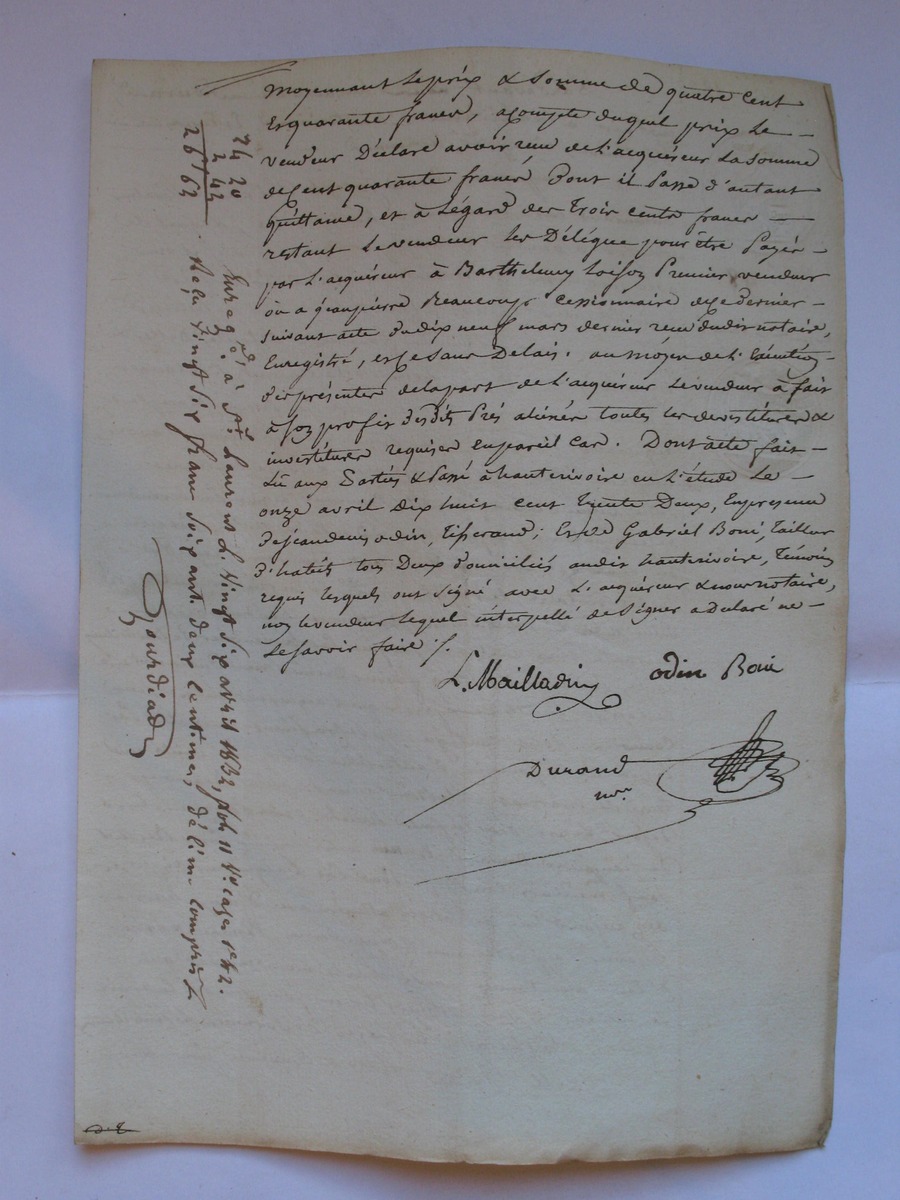 moyennant le prix & somme de quatre cent
et quarante francs, acompte duquel prix le
vendeur Déclare avoir reçu de l'acquéreur la somme
de Cent quarante francs Dont il Passe d'autant
quittance, et à l'égard des Trois cents francs
restant le vendeur les Délégue pour être Payés
par l'acquéreur à Barthelemy Loison Premier vendeur
ou a Beaucoup Cessionnaire de ce dernier
suivant acte du dix neuf mars dernier reçu dudit notaire,
Enregistré, et ce sans Delais. au moyen de
des présentes de la part de l'acquéreur Le vendeur à fait
à son profit desdits Prés aliénés toutes les devestitures &
investitures requises en pareil Cas. Dont acte fait
Lû aux Parties & Passé à hauterivoire en l'étude Le
onze avril Dix huit cent Trente Deux, En présence
de Jean denis odin, Tisserand; Et de Gabriel Boni, Tailleur
d'habits tous Deux domiciliés audit hauterivoire, Témoins
requis lesquels ont signé avec L'acquéreur & nous notaire,
non le vendeur lequel interpellé de Signer a Déclaré ne
Le savoir faire /.
L. Mailladin odin Boni
Durand
nre
24 20
2 42
26 62
Enregtré à St Laurent le vingt six avril 1832, fol. 11 Vo. cases 1 et 2.
Reçu vingt six francs soixante deux centimes, décime compris
Gourdiat